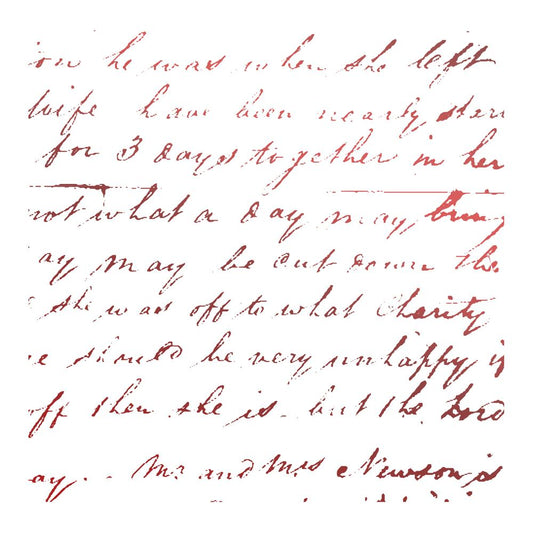 ion he was when she left
wife have been nearly stern
for 3 days together in her
not what a day may bring
ay may be cut down the
she was off to what Charity
e should be very unhappy if
off then she is - but the Lord
ay. - Mr. and Mrs Newson is